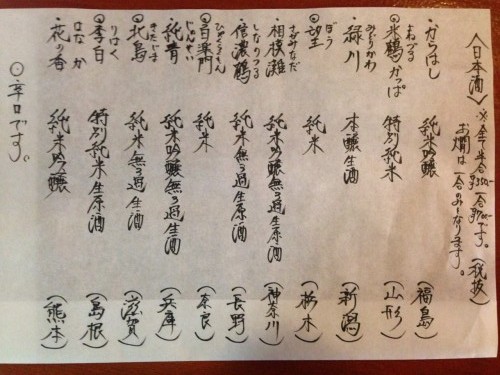 〈日本酒〉 ※全て半合¥350- 一合¥700-です。(税抜)
お燗は一合のみになります。
・からはし 純米吟醸 (福島)
よねづる
◎米鶴かっぱ 特別純米 (山形)
みどりかわ
・緑川 本醸生酒 (新潟)
ぼう
◎望 純米 (栃木)
・相模灘 純米吟醸無ろ過生原酒 (神奈川)
さがみなだ
・信濃鶴 純米無ろ過生原酒 (長野)
しなのつる
◎百楽門 純米 (奈良)
ひゃくらくもん
・純青 純米吟醸無ろ過生酒 (兵庫)
じゅんせい
◎北島 純米無ろ過生酒 (滋賀)
きたじま
◎李白 特別純米生原酒 (島根)
りはく
・花の香 純米吟醸 (熊本)
はな か
◎辛口です。